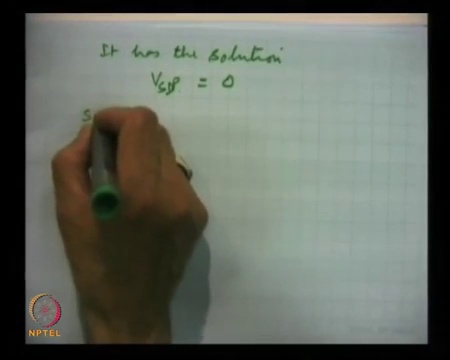 It has the solution
= 0
S
NPTEL